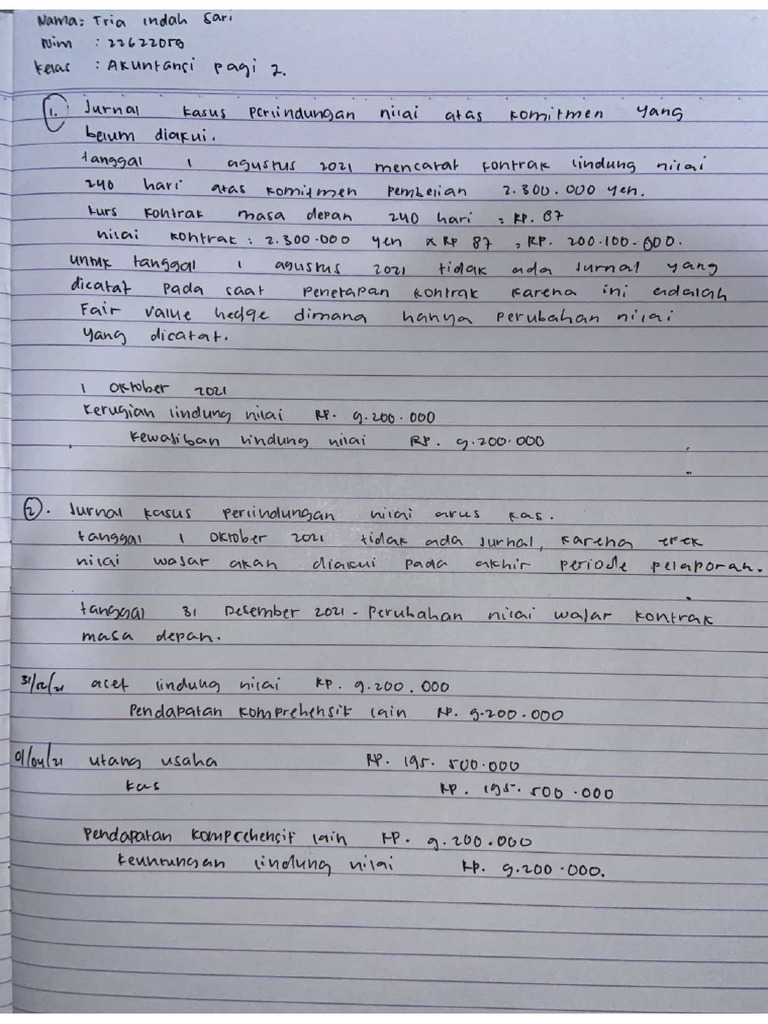 Nama: Tria indah Sari
Nim : 22622058
Kelas : Akuntansi pagi 2.
1. Jurnal kasus perlindungan nilai atas komitmen yang
belum diakui.
tanggal 1 agustus 2021 mencatat kontrak lindung nilai
240 hari atas komitmen pembelian 2.300.000 yen.
kurs kontrak masa depan 240 hari : Rp. 87
nilai kontrak : 2.300.000 yen x Rp 87 , Rp. 200.100.000.
untuk tanggal 1 agustus 2021 tidak ada jurnal yang
dicatat pada saat penetapan kontrak karena ini adalah
Fair value hedge dimana hanya perubahan nilai
yang dicatat.
1 Oktober 2021
kerugian lindung nilai Rp. 9.200.000
kewajiban lindung nilai Rp. 9.200.000
2. Jurnal kasus perlindungan nilai arus kas.
tanggal 1 Oktober 2021 tidak ada jurnal, karena efek
nilai wajar akan diakui pada akhir periode pelaporan.
tanggal 31 Desember 2021 - Perubahan nilai wajar kontrak
masa depan.
31/12/21 aset lindung nilai Rp. 9.200.000
Pendapatan komprehensif lain Rp. 9.200.000
01/04/21 utang usaha Rp. 195.500.000
kas Rp. 195.500.000
Pendapatan komprehensif lain Rp. 9.200.000
keuntungan lindung nilai Rp. 9.200.000.